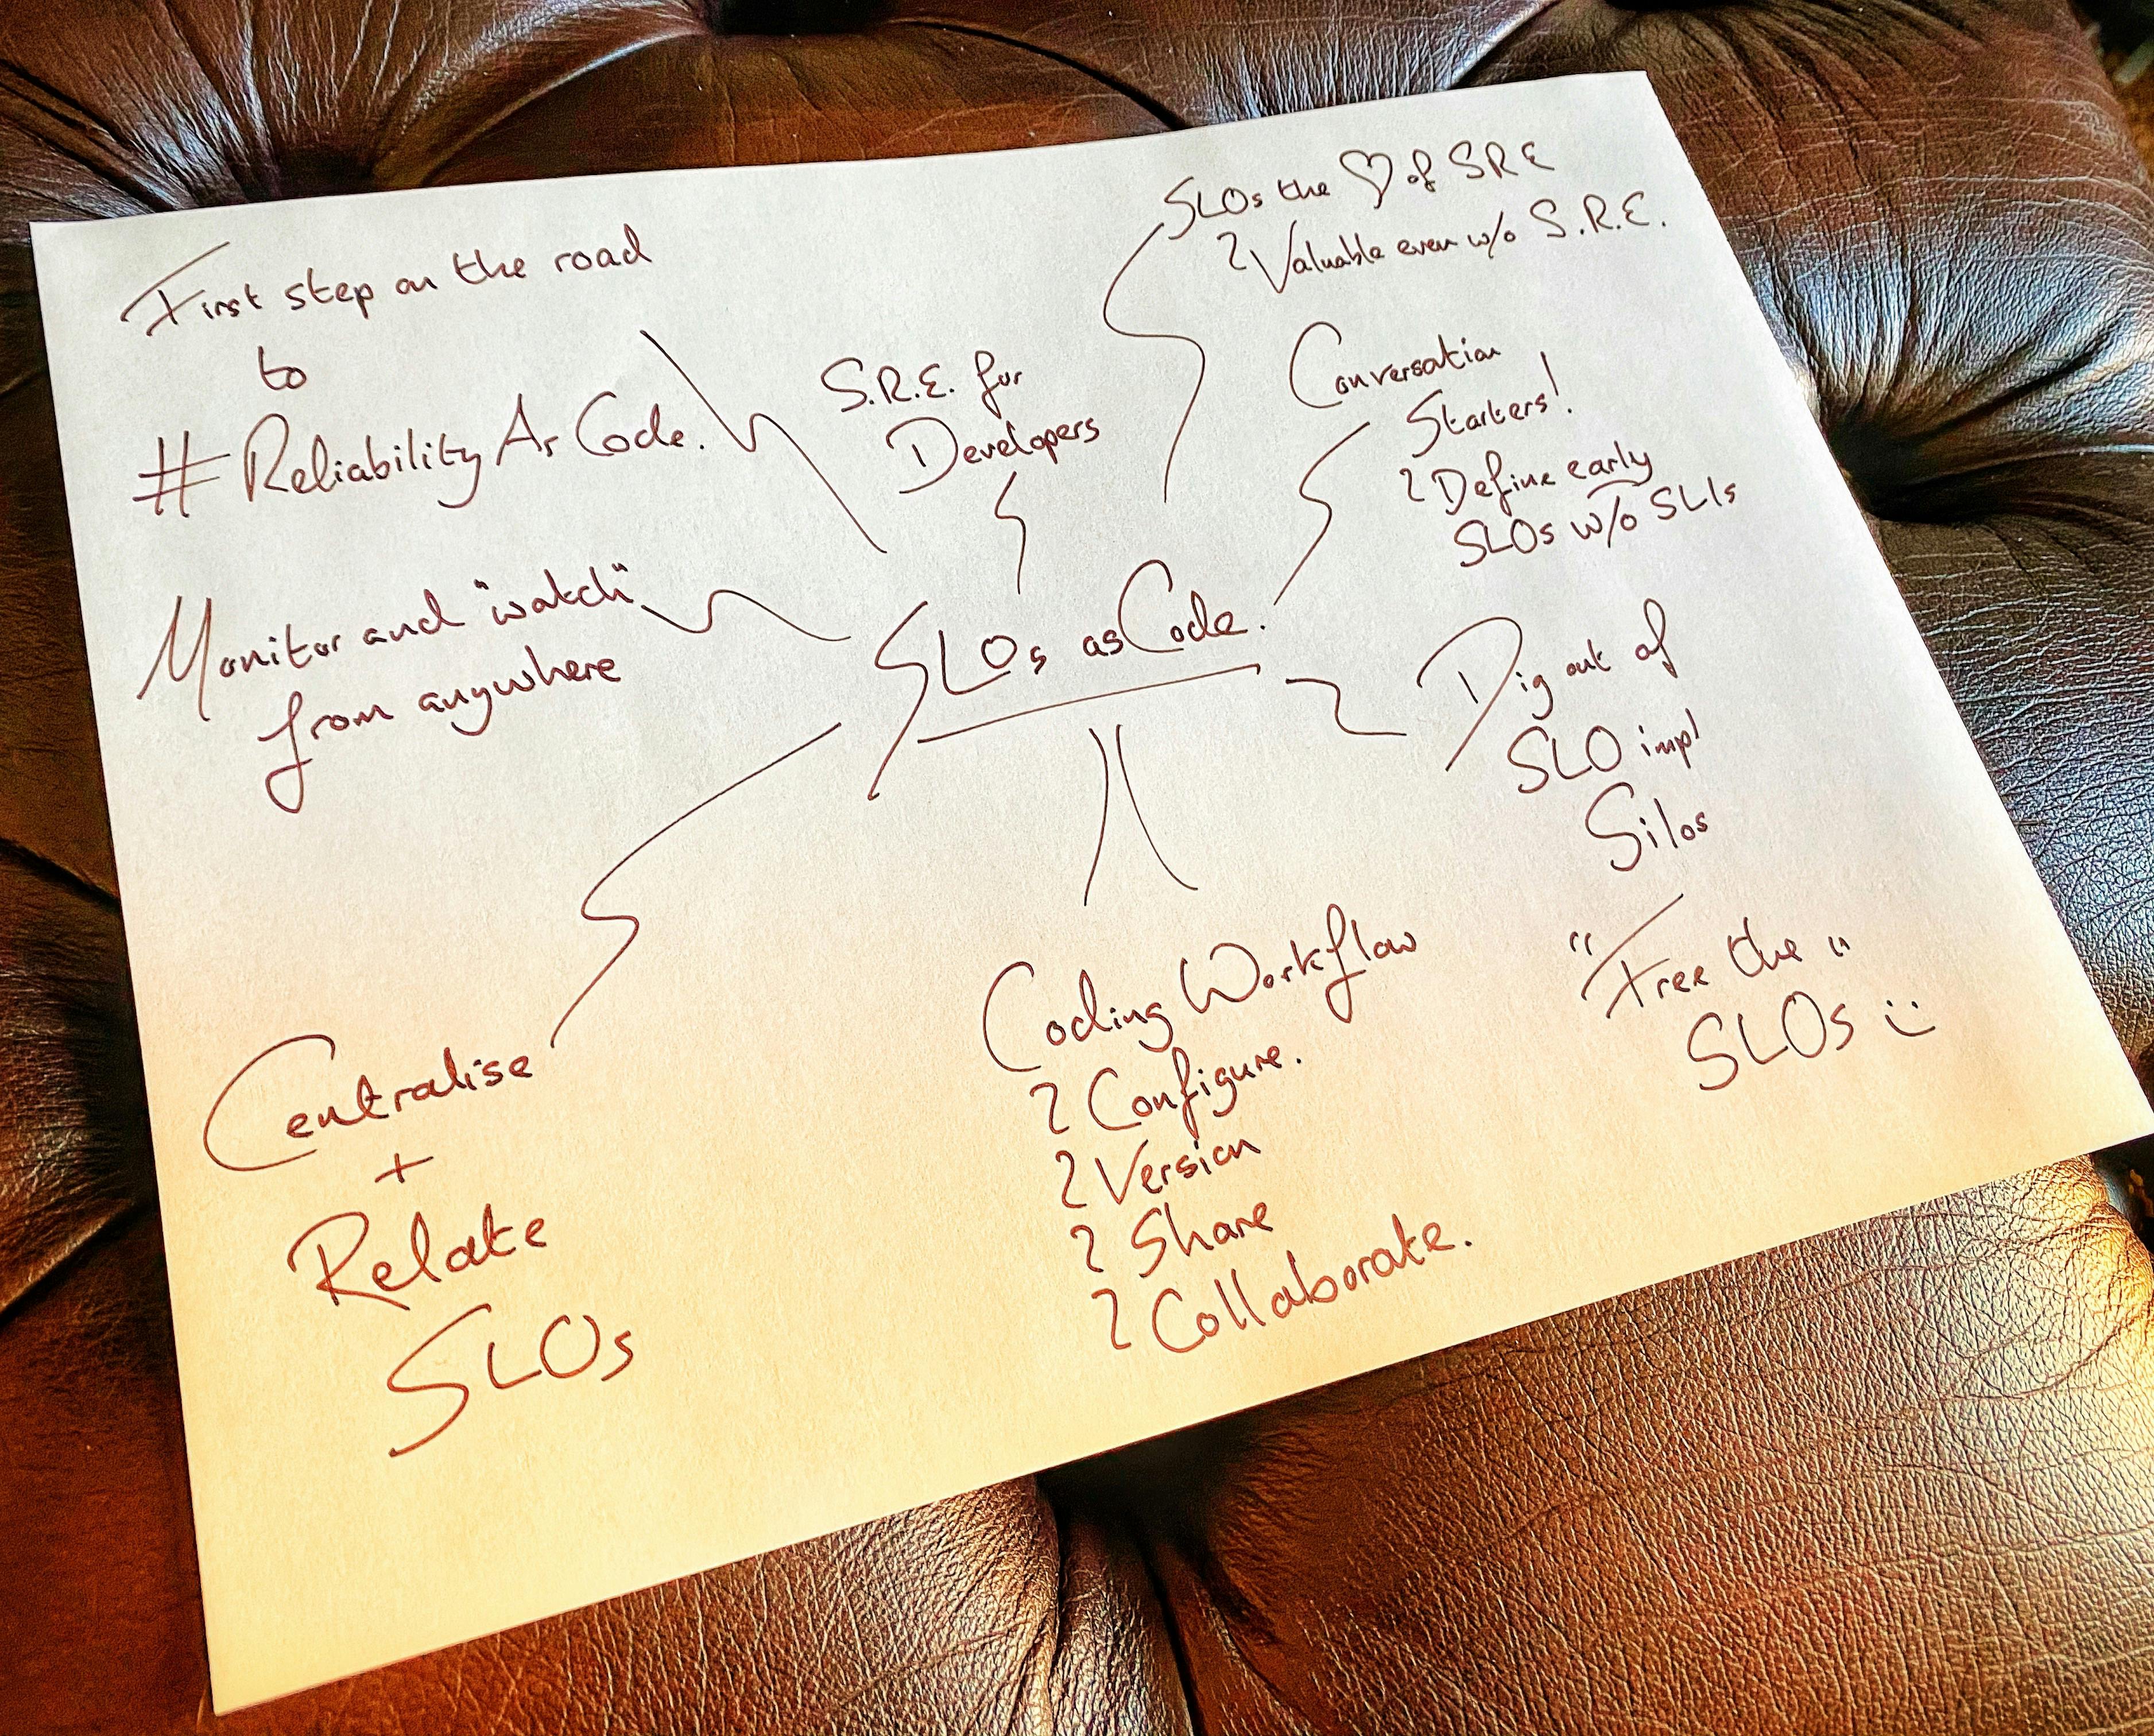 First step on the road
to
#ReliabilityAsCode.
SLOs the ♡ of SRE
Valuable even w/o S.R.E.
S.R.E. for
Developers
Conversation
Starters!
Define early
SLOs w/o SLIs
Monitor and "watch"
from anywhere
SLOs as Code.
Dig out of
SLO impl
Silos
"Free the "
SLOs :)
Centralise
+
Relate
SLOs
Coding Workflow
Configure.
Version
Share
Collaborate.